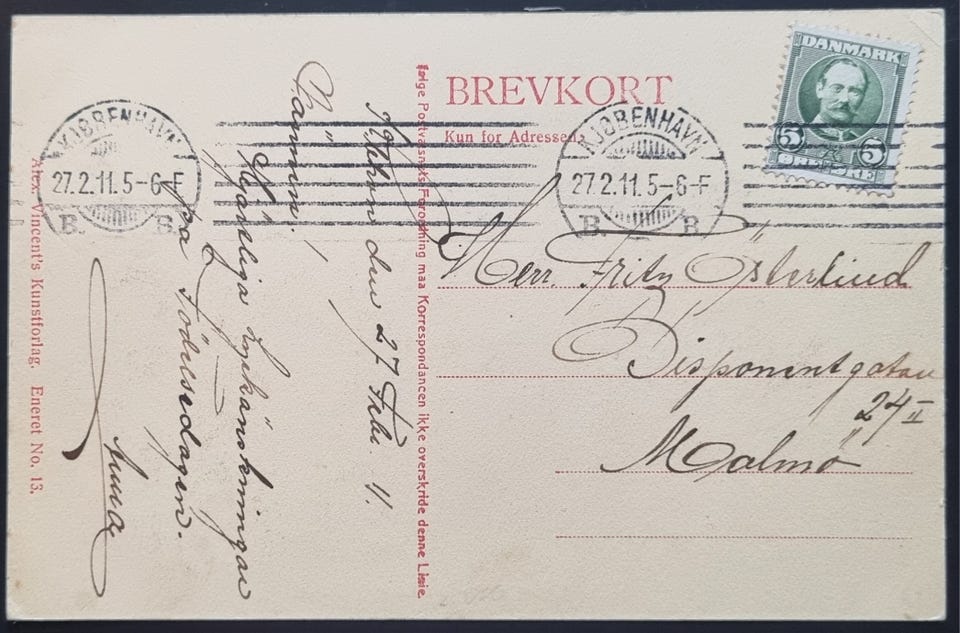 BREVKORT
Kun for Adressen.
DANMARK
5 ØRE 5
KJØBENHAVN
27.2.11.5-6-F
B. B.
KJØBENHAVN
27.2.11.5-6-F
B. B.
Herr. Fritz Österlind
Disponentgatan
24 II
Malmö
Ifølge Postvæsnets Forordning maa Korrespondancen ikke overskride denne Linie.
Kbhvn den 27 Febr. 11.
Hjärtliga lyckönskningar
på Födelsedagen.
Anna
Alex. Vincent's Kunstforlag. Eneret No. 13.